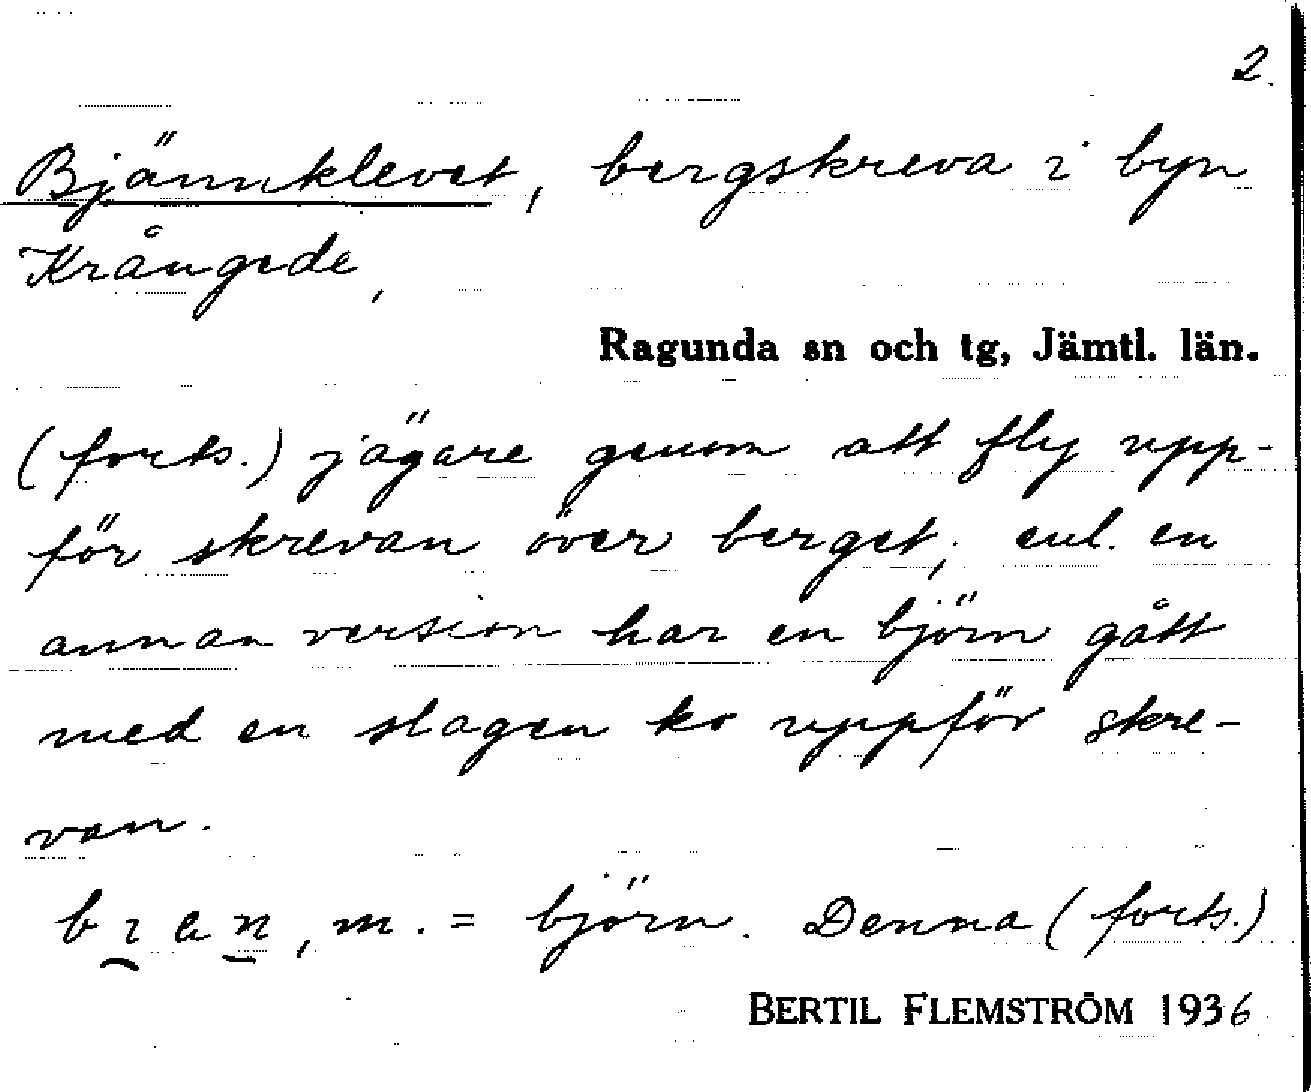 2.
Bjännklevet, bergskreva i byn
Krångede,
Ragunda sn och tg, Jämtl. län.
(forts.) jägare genom att fly upp-
för skrevan över berget; enl. en
annan version har en björn gått
med en slagen ko uppför skre-
van.
, m. = björn. Denna (forts.)
BERTIL FLEMSTRÖM 1936